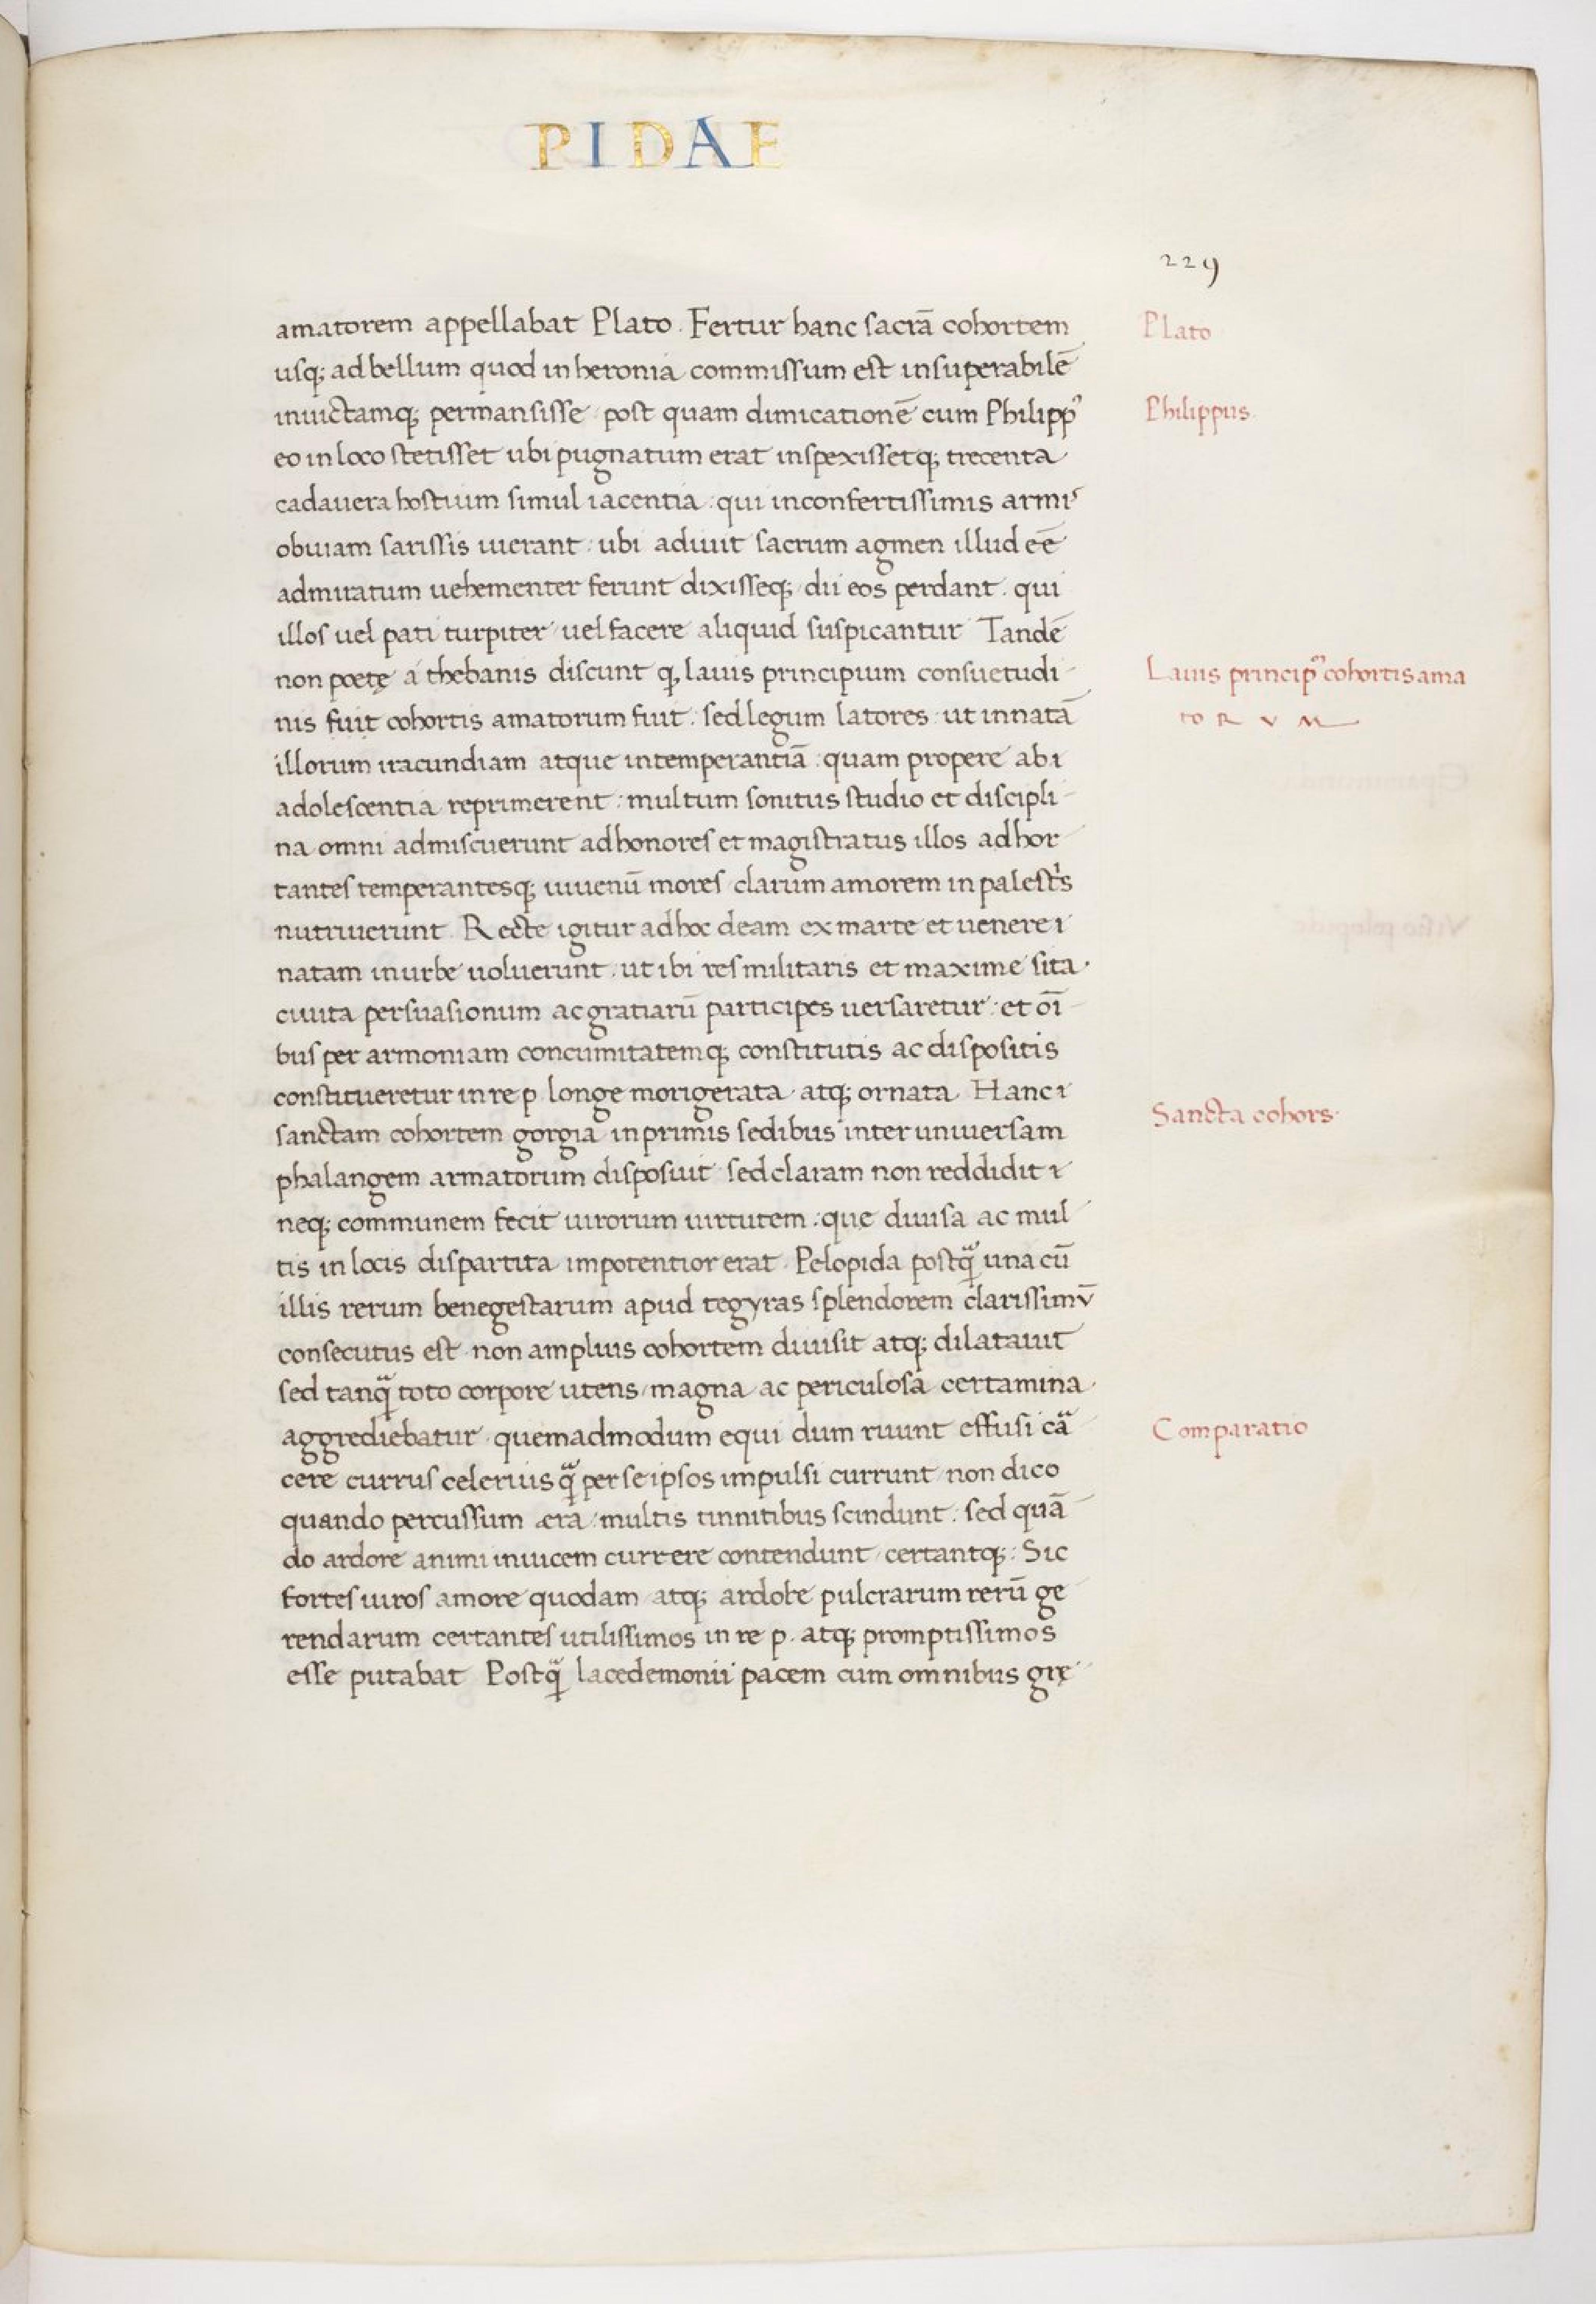 PIDAE
229
amatorem appellabat Plato. Fertur hanc sacrā cohortem
Plato
usq; ad bellum quod in heronia commissum est insuperabilē
inuictamq; permansisse post quam dimicationē cum Philippꝰ
Philippus
eo in loco stetisset ubi pugnatum erat inspexissetq; trecenta
cadauera hostium simul iacentia : qui inconfertissimis armis
obuiam sarissis uierant : ubi adiuit sacrum agmen illud eē
admiratum uehementer ferunt dixisseq; dii eos perdant. qui
illos uel pati turpiter uel facere aliquid suspicantur Tandē
non poetę a thebanis discunt q, lauis principium consuetudi-
Lauis principꝰ cohortis ama
nis fuit cohortis amatorum fuit : sed legum latores ut innatā
toRVM
illorum iracundiam atque intemperantiā : quam propere ab ı
adolescentia reprimerent : multum sonitus studio et discipli-
na omni admiscuerunt ad honores et magistratus illos adhor-
tantes temperantesq; iuuenū mores clarum amorem in palestris
nutriuerunt. Recte igitur ad hoc deam ex marte et uenere ı
natam in urbe uoluerunt. ut ibi res militaris et maxime sita.
ciuita persuasionum ac gratiarū participes uersaretur : et oī-
bus per armoniam concinnitatemq; constitutis ac dispositis
constitueretur in re p. longe morigerata. atq; ornata. Hanc ı
sanctam cohortem gorgia in primis sedibus inter uniuersam
Sancta cohors.
phalangem armatorum disposuit sed claram non reddidit ı
neq; communem fecit uirorum uirtutem : que diuisa ac mul-
tis in locis dispartita impotentior erat. Pelopida postqᷓ una cū
illis rerum bene gestarum apud tegyras splendorem clarissimū
consecutus est. non amplius cohortem diuisit atq; dilatauit
sed tanqᷓ toto corpore utens / magna ac periculosa certamina.
aggrediebatur. quemadmodum equi dum ruunt effusi cᷓa-
Comparatio
cere currus celerius qᷓ per se ipsos impulsi currunt / non dico
quando percussum æra : multis tinnitibus scindunt : sed quā-
do ardore animi inuicem currere contendunt / certantq; : Sic
fortes uiros amore quodam atq; ardore pulcrarum rerū ge
rendarum certantes utilissimos in re p. atq; promptissimos
esse putabat Postqᷓ lacedemonii pacem cum omnibus grę-